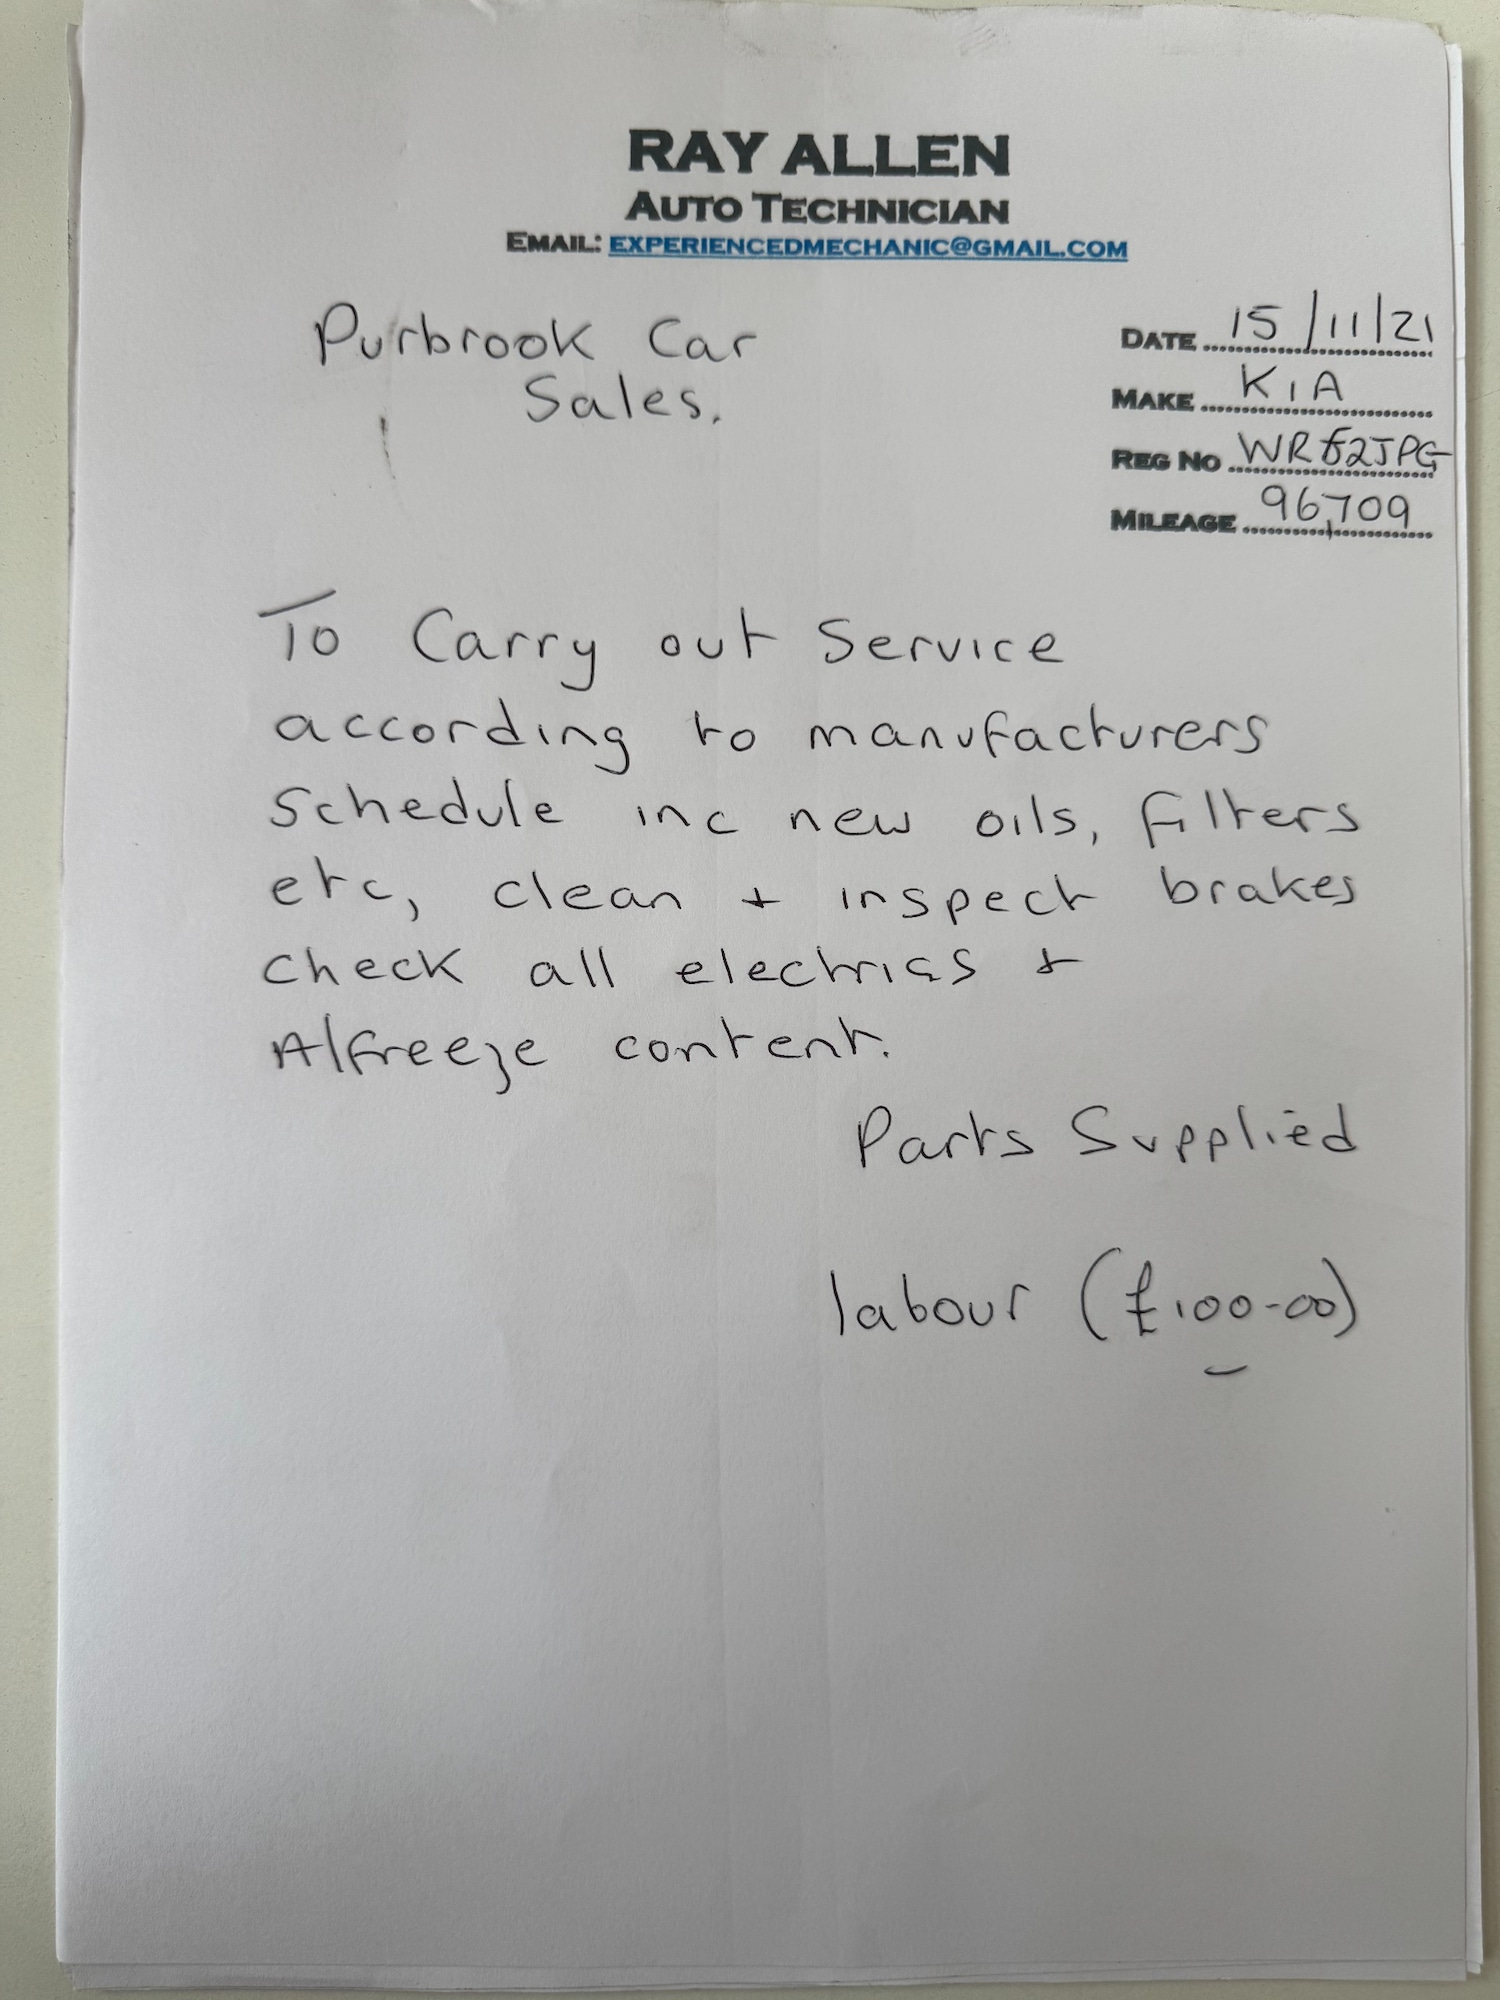 RAY ALLEN
AUTO TECHNICIAN
EMAIL: EXPERIENCEDMECHANIC@GMAIL.COM
Purbrook Car
Sales.
DATE 15/11/21
MAKE KIA
REG NO
MILEAGE 96,709
To Carry out Service
according to manufacturers
Schedule inc new oils, filters
etc, clean + inspect brakes
check all electrics +
A/freeze content.
Parts Supplied
labour (£100-00)